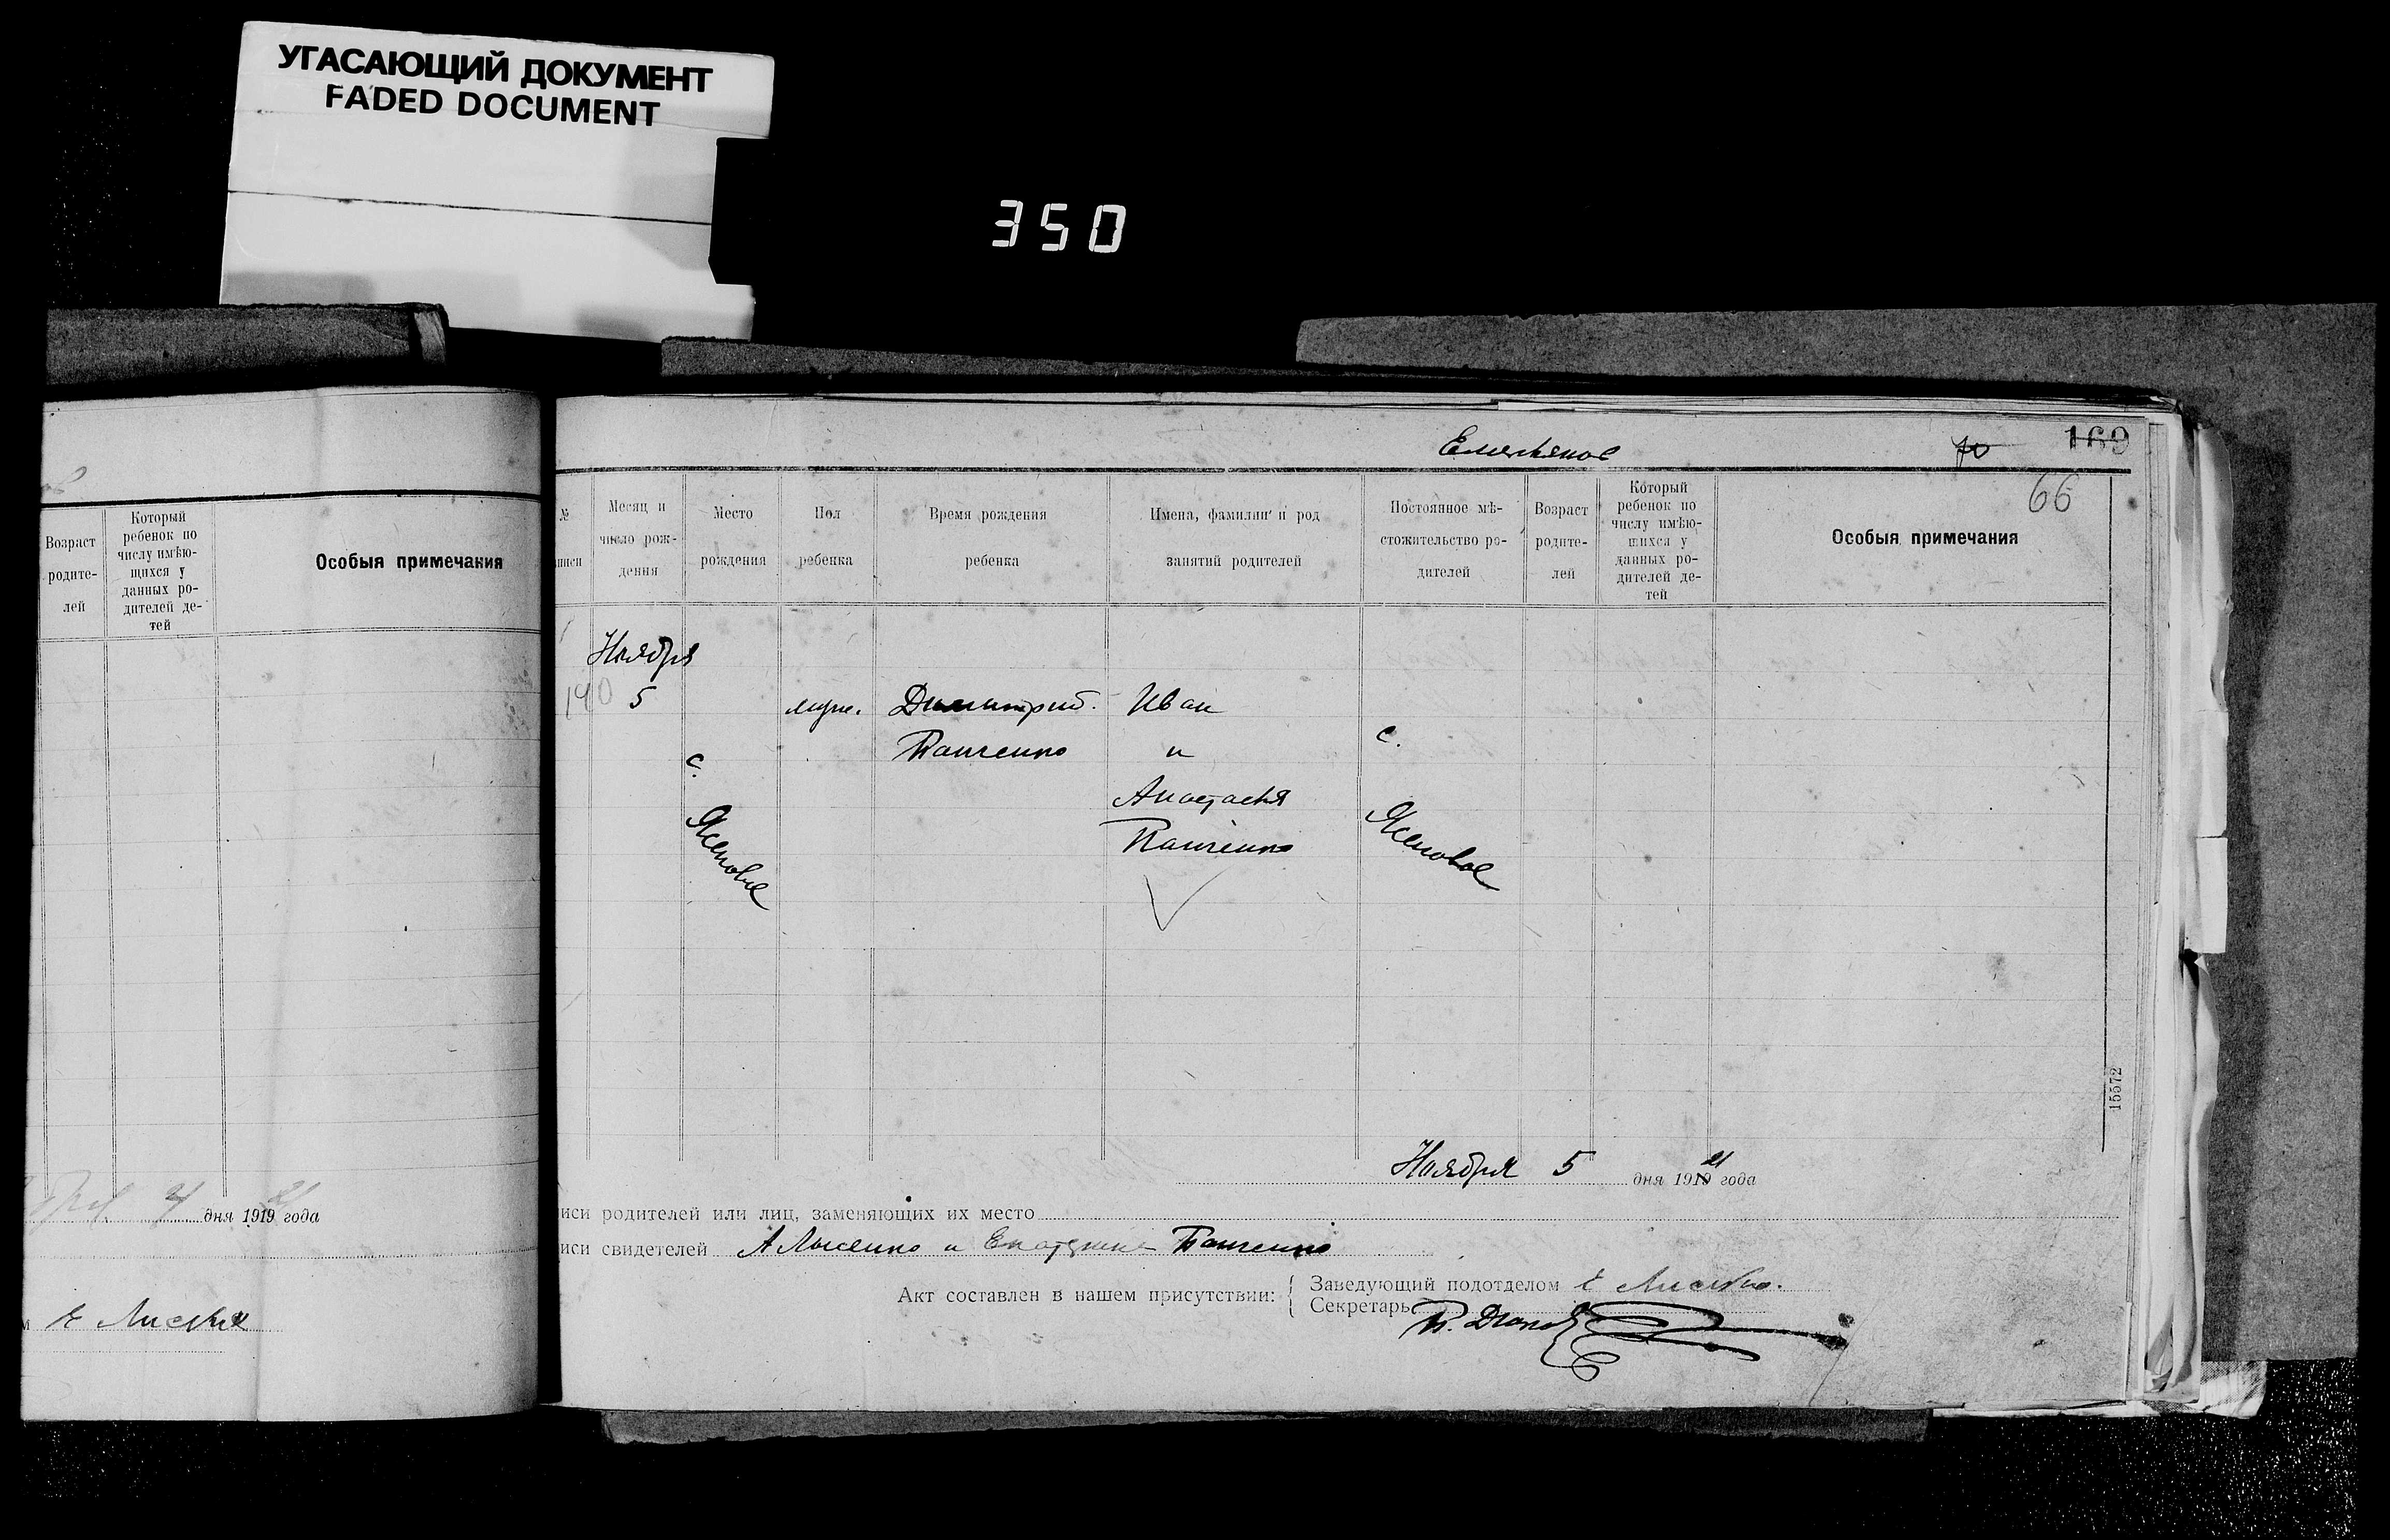 УГАСАЮЩИЙ ДОКУМЕНТ
FADED DOCUMENT
350
Возраст
родите-
лей
Который
ребенок по
числу имѣю-
щихся у
данных ро-
дителей де-
тей
Особыя примечания
4 дня 1919 года
21
Емельянов
70 169
66
№
Месяц и
число рож-
дения
Место
рождения
Пол
ребенка
Время рождения
ребенка
Имена, фамилии и род
занятий родителей
Постоянное мѣ-
стожительство ро-
дителей
Возраст
родите-
лей
Который
ребенок по
числу имѣю-
щихся у
данных ро-
дителей де-
тей
Особыя примечания
Ноября
140 5 муж. Димитрий. Иван
Панченко и
с. с.
Анастасья
Ясеновое Панченко Ясеновое
15572
Ноября 5 дня 1919 года
21
иси родителей или лиц, заменяющих их место
иси свидетелей А Лысенко и Екатерина Панченко
Акт составлен в нашем присутствии: { Заведующий подотделом
Секретарь